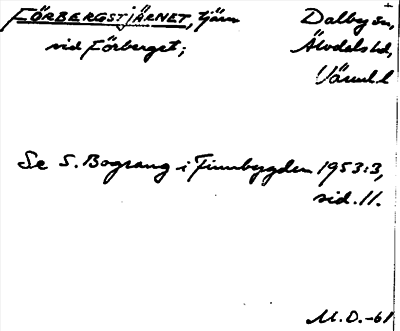 FÖRBERGSTJÄRNET, tjärn Dalby sn,
vid Förberget; Älvdals hd,
Värml. l
Se S. Bograng i Finnbygden 1953:3,
sid. 11.
M.O.-61